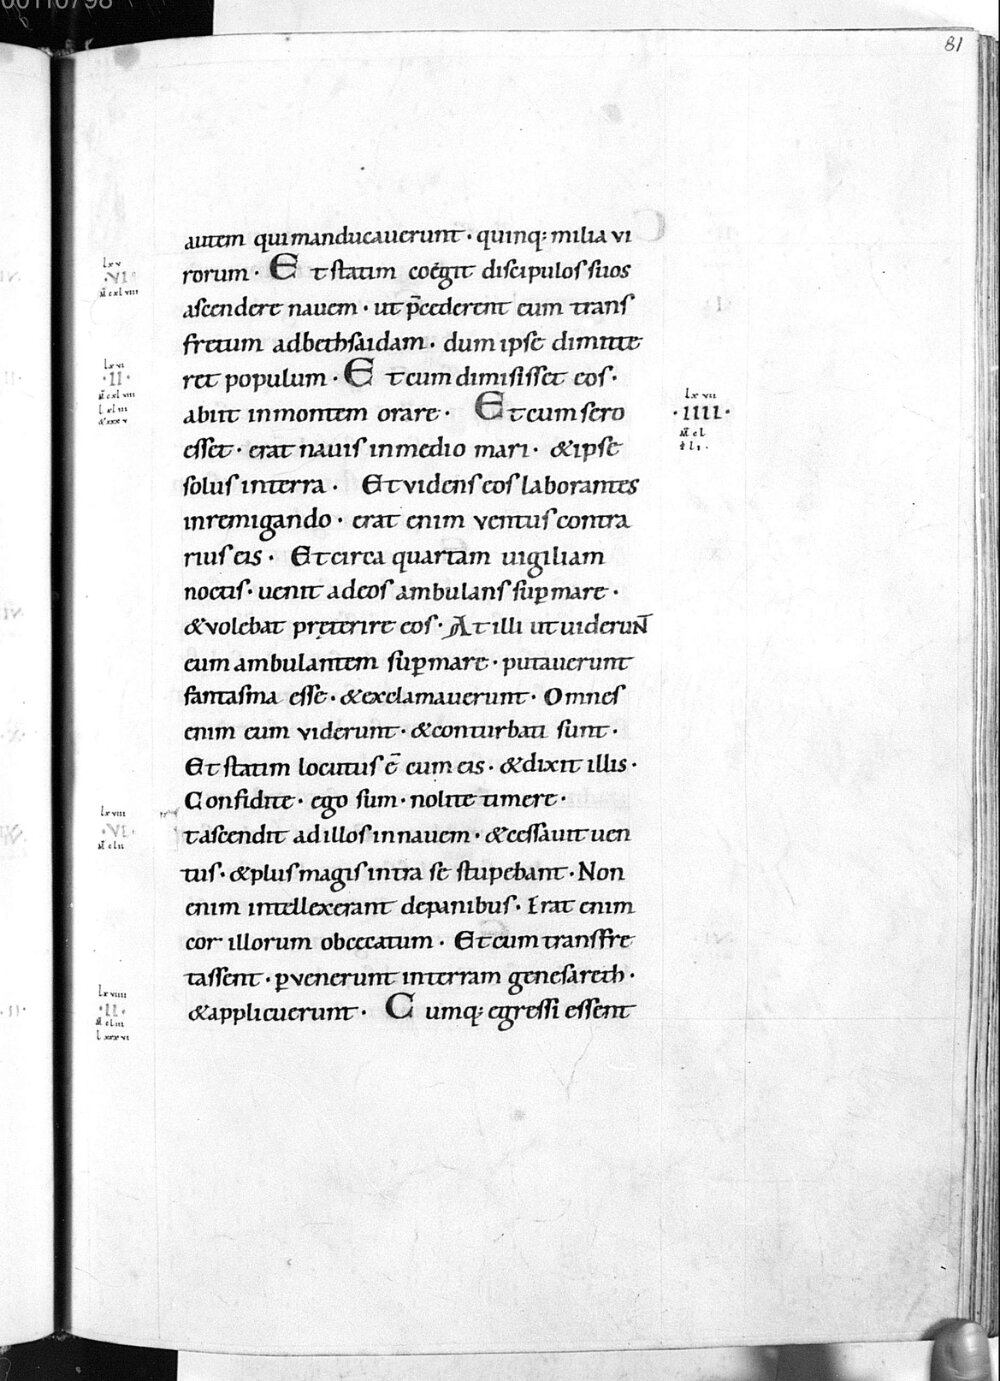 00110798
81
autem qui manducauerunt · quinq; milia vi
rorum · Et statim coegit discipulos suos
ascendere nauem · ut p̄cederent eum trans
fretum ad bethsaidam · dum ipse dimitte
ret populum · Et cum dimisisset eos ·
abiit in montem orare · Et cum sero
esset · erat nauis in medio mari · & ipse
solus in terra · Et videns eos laborantes
in remigando · erat enim ventus contra
rius eis · Et circa quartam uigiliam
noctis · uenit ad eos ambulans sup̱ mare ·
& volebat pręterire eos · At illi ut uiderun̄
eum ambulantem sup̱ mare · putauerunt
fantasma esse · & exclamauerunt · Omnes
enim eum viderunt · & conturbati sunt ·
Et statim locutus ē cum eis · & dixit illis ·
Confidite · ego sum · nolite timere ·
t ascendit ad illos in nauem · & cessauit uen
tus · & plus magis intra se stupebant · Non
enim intellexerant de panibus · Erat enim
cor illorum obcecatum · Et cum transfre
tassent · ꝑvenerunt in terram genesareth ·
& applicuerunt · Cumq; egressi essent
lxv
·VI·
m̄ cxlviii
lxvi
·II·
m̄ cxlviiii
lxvii
·IIII·
m̄ cl
lxviii
·VI·
m̄ clii
lxviiii
·II·
m̄ cliii
lxxxvi